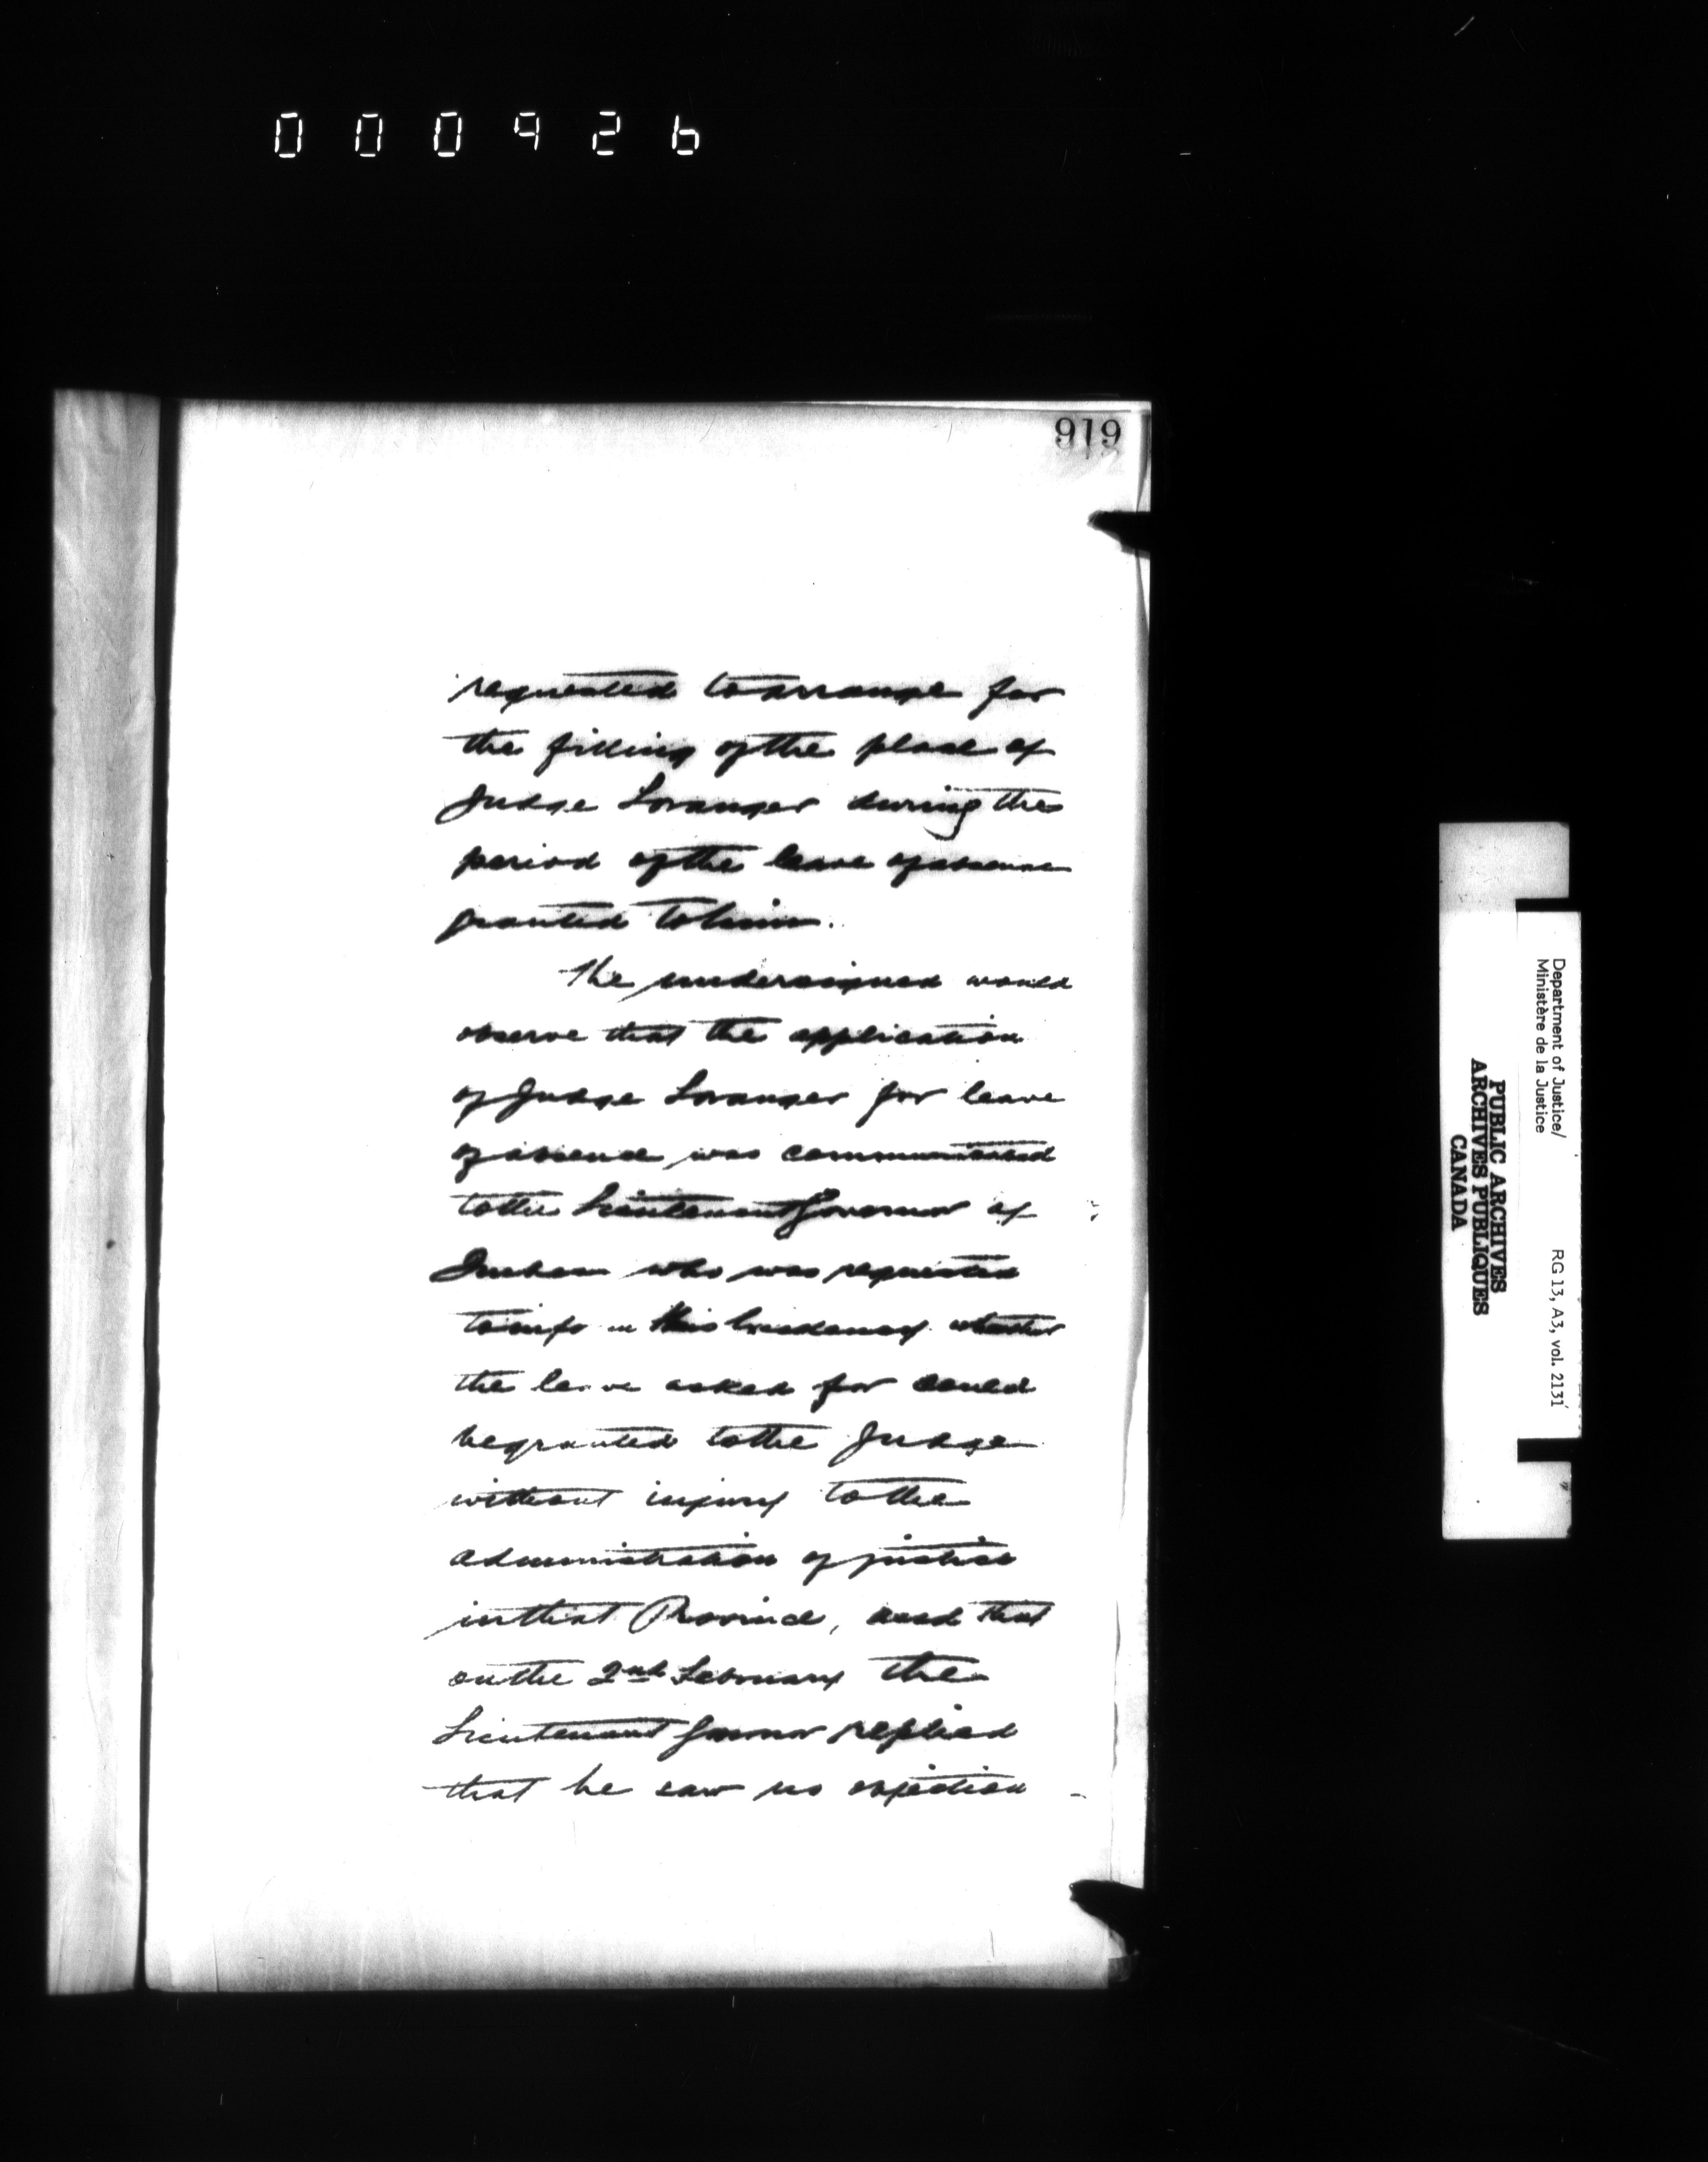 000926
919
requested to arrange for
the filling of the place of
Judge Loranger during the
period of the leave of absence
granted to him.
The undersigned would
observe that the application
of Judge Loranger for leave
of absence was communicated
to the Lieutenant Governor of
Quebec who was requested
to info m His Excellency whether
the leave asked for could
be granted to the Judge
without injury to the
administration of justice
in that Province, and that
on the 2nd February the
Lieutenant Governor replied
that he saw no objection
Department of Justice/
Ministère de la Justice
RG 13, A3, vol. 2131
PUBLIC ARCHIVES
ARCHIVES PUBLIQUES
CANADA